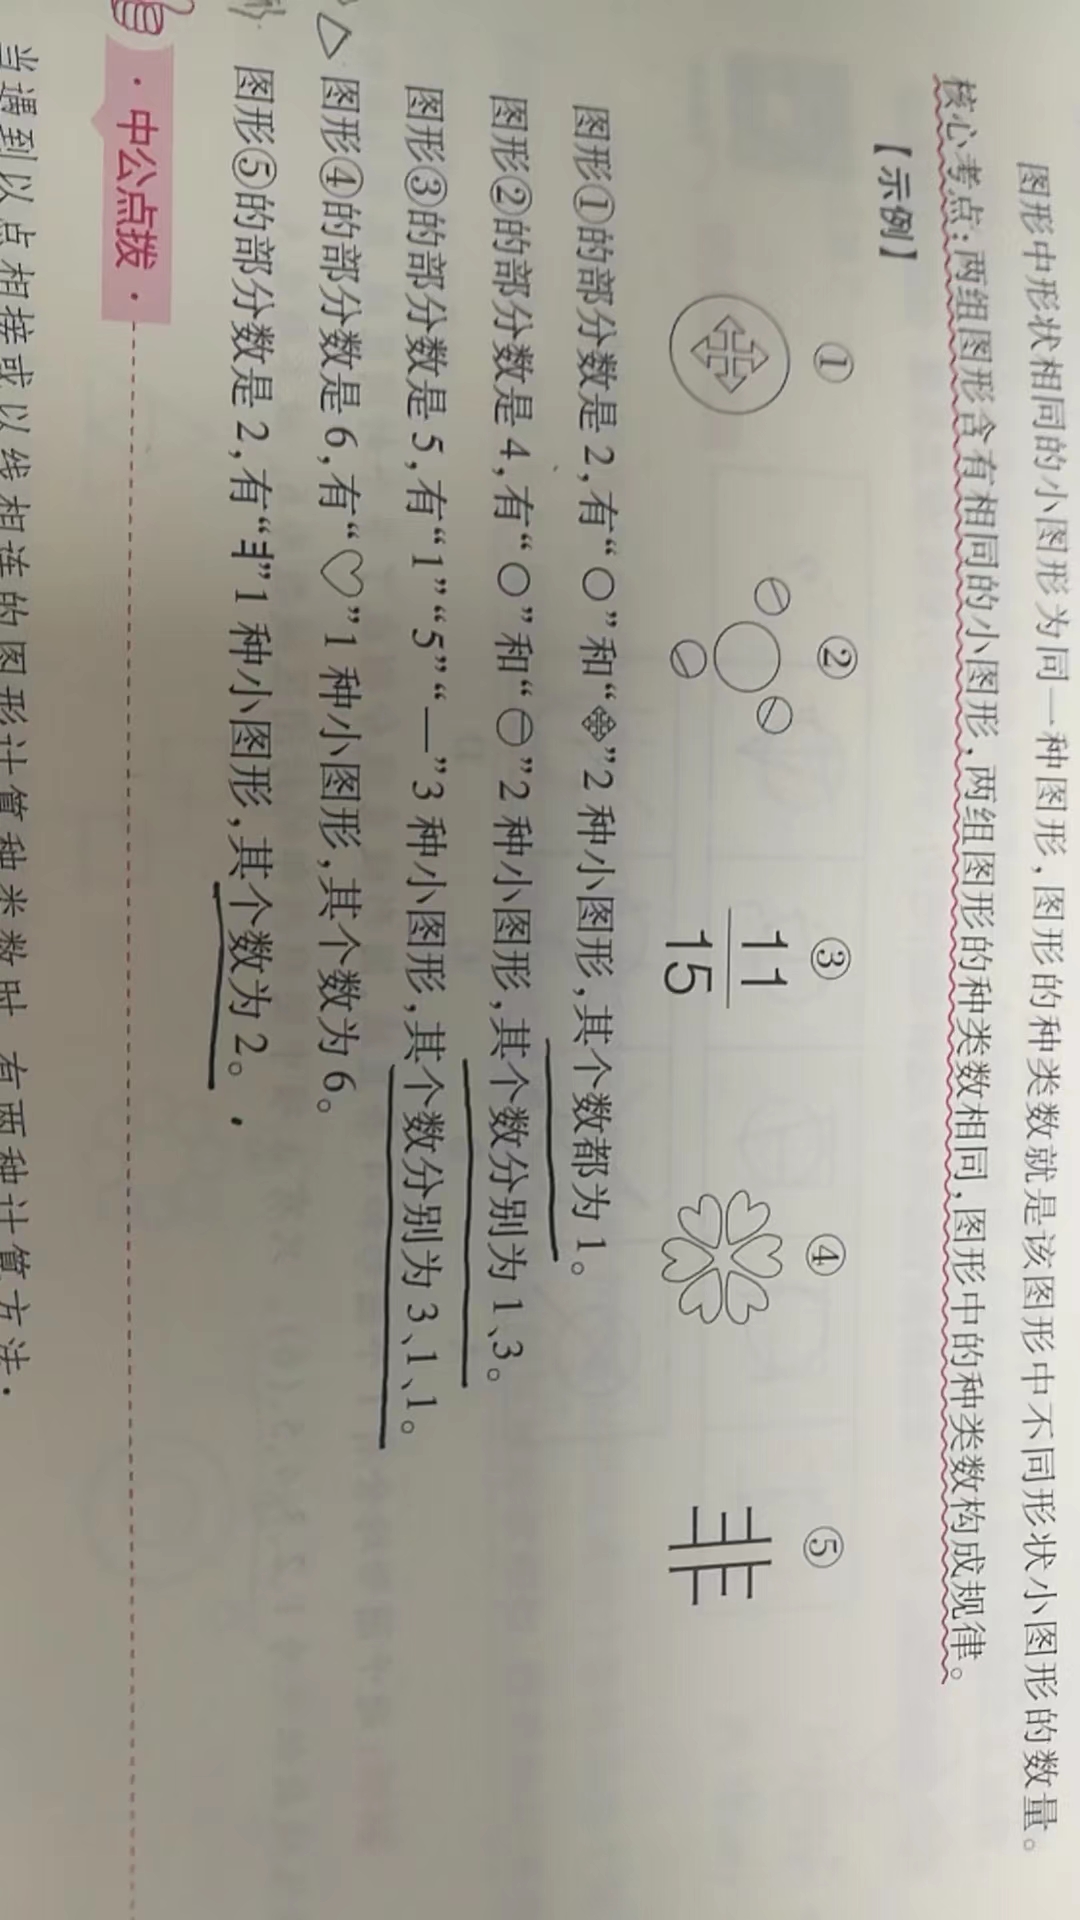 图形中形状相同的小图形为同一种图形,图形的种类数就是该图形中不同形状小图形的数量。
核心考点:两组图形含有相同的小图形,两组图形的种类数相同,图形中的种类数构成规律。
【示例】
① ② ③ ④ ⑤
11
15
图形①的部分数是2,有“○”和“”2种小图形,其个数都为1。
图形②的部分数是4,有“○”和“⊖”2种小图形,其个数分别为1、3。
图形③的部分数是5,有“1”“5”“—”3种小图形,其个数分别为3、1、1。
图形④的部分数是6,有“♡”1种小图形,其个数为6。
图形⑤的部分数是2,有“”1种小图形,其个数为2。
·中公点拨·
当遇到以点相接或以线相连的图形计算种类数时,有两种计算方法: